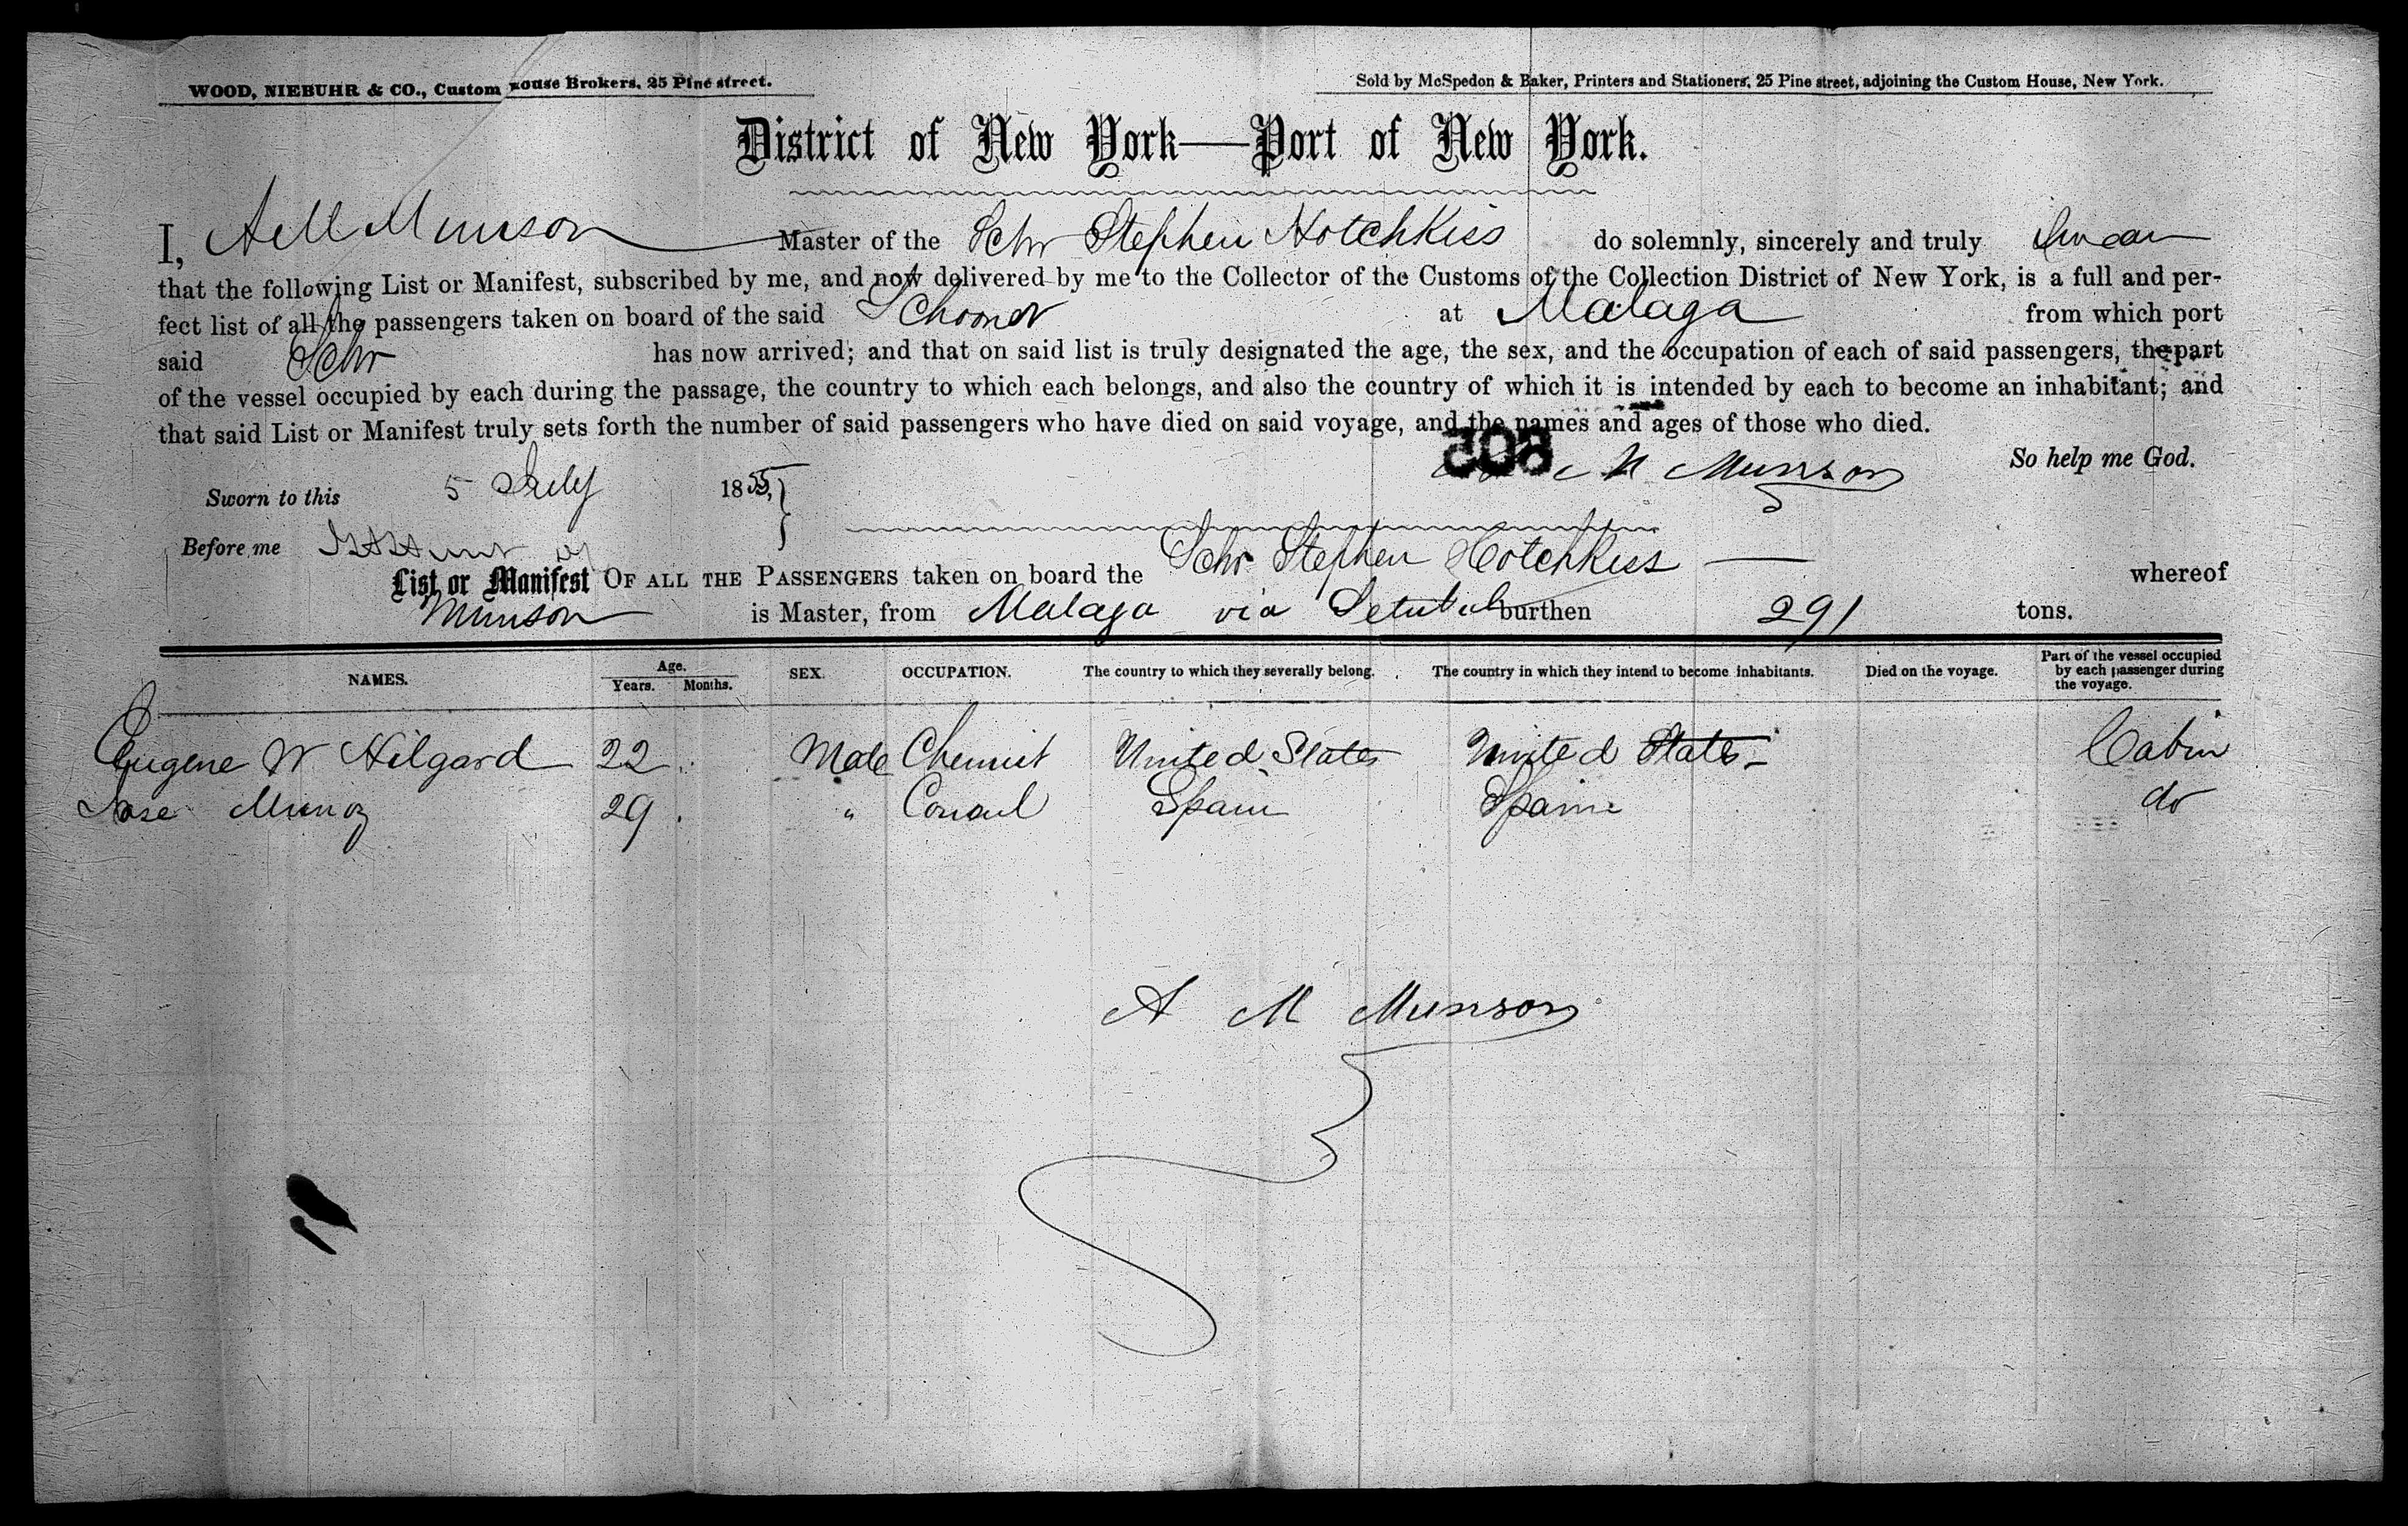 WOOD, NIEBUHR & CO., Custom house Brokers, 25 Pine street.
Sold by McSpedon & Baker, Printers and Stationers, 25 Pine street, adjoining the Custom House, New York.
District of New York—Port of New York.
I, A M Munson Master of the Schr Stephen Hotchkiss do solemnly, sincerely and truly Swear
that the following List or Manifest, subscribed by me, and now delivered by me to the Collector of the Customs of the Collection District of New York, is a full and per-
fect list of all the passengers taken on board of the said Schooner at Malaga from which port
said Schr has now arrived; and that on said list is truly designated the age, the sex, and the occupation of each of said passengers, the part
of the vessel occupied by each during the passage, the country to which each belongs, and also the country of which it is intended by each to become an inhabitant; and
that said List or Manifest truly sets forth the number of said passengers who have died on said voyage, and the names and ages of those who died.
So help me God.
505
M Munson
Sworn to this 5 July 1855,
Before me
List or Manifest OF ALL THE PASSENGERS taken on board the Schr Stephen Hotchkiss — whereof
Munson is Master, from Malaga via Setubal burthen 291 tons.
NAMES. Age. Years. Months. SEX. OCCUPATION. The country to which they severally belong. The country in which they intend to become inhabitants. Died on the voyage. Part of the vessel occupied by each passenger during the voyage.
Eugene W Hilgard 22 Male Chemist United States United States Cabin
Jose Munoz 29 " Consul Spain Spain do
A M Munson